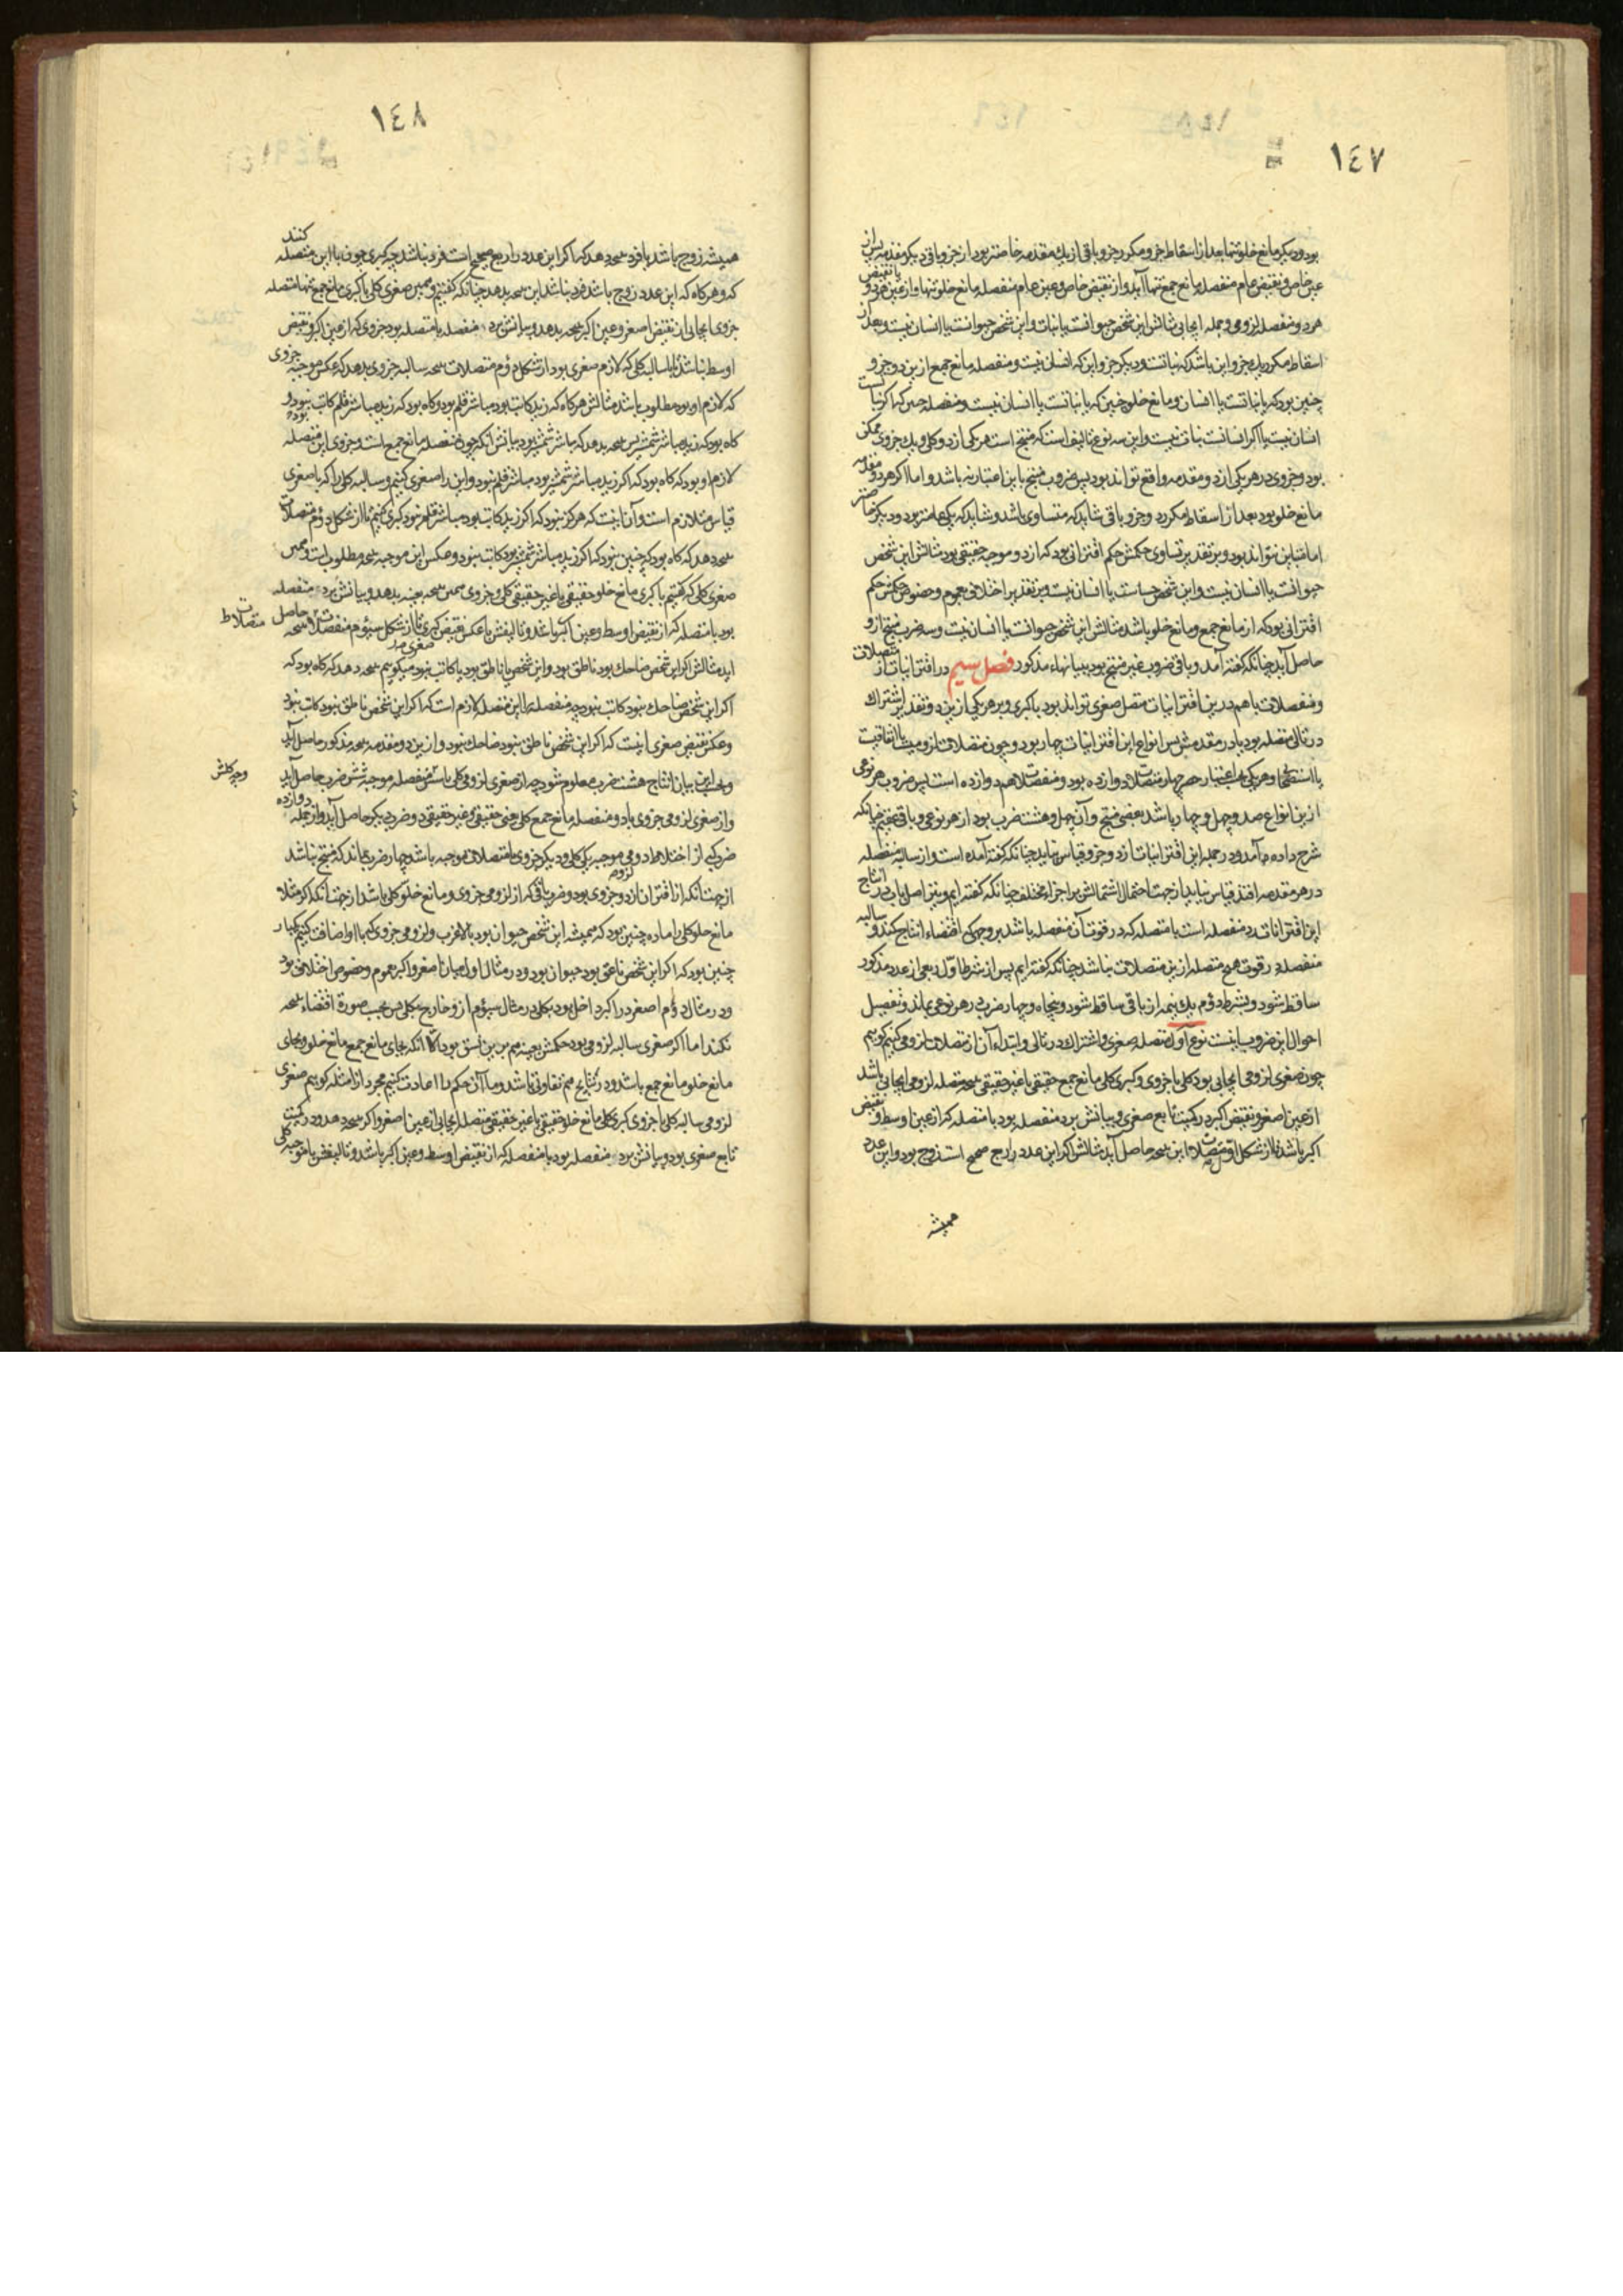 ١٤٧
بود و دیگر مانع خلو تنها بعد از اسقاط جزو مکرر جزو باقی از یک مقدمه خاص‌تر بود از جزو باقی دیگر مقدمه پس از
عین خاص و نقیض عام منفصله مانع جمع تنها آید و از نقیض خاص و عین عام منفصله مانع خلو تنها و از عین هر دو یا نقیض
هر دو متصله لزومی و جمله ایجابی مثالش این شخص حیوانست یا نبات و این شخص حیوانست یا انسان نیست و بعد از
اسقاط مکرر یک جزو این باشد که نباتست و دیگر جزو این که انسان نیست و منفصله مانع جمع ازین دو جزو
چنین بود که یا نباتست یا انسان و مانع خلو چنین که یا نباتست یا انسان نیست و متصله چنین که اگر نباتست
انسان نیست یا اگر انسانست نبات نیست و این سه نوع تالیف است که منتج است هر یکی از دو کلی و یک جزوی ممکن
بود و جزوی در هر یکی از دو مقدمه واقع تواند بود پس ضروب منتج باین اعتبار نه باشد و اما اگر هر دو مقدمه
مانع خلو بود بعد از اسقاط مکرر دو جزو باقی شاید که متساوی باشد و شاید که یکی عامتر بود و دیگر خاصتر
اما متباین نتواند بود و بر تقدیر تساوی حکمش حکم اقترانی بود که از دو موجبه حقیقی بود مثالش این شخص
حیوانست یا انسان نیست و این شخص حساست یا انسان نیست و بر تقدیر اختلاف بعموم و خصوص حکمش حکم
اقترانی بود که از مانع جمع و مانع خلو باشد مثالش این شخص حیوانست یا انسان نیست و سه ضرب منتج ازو
حاصل آید چنانکه گفته آمد و باقی ضروب غیر منتج بود ببیانهاء مذکور فصل سیم در اقترانیات از متصلات
و منفصلات با هم درین اقترانیات متصل صغری تواند بود یا کبری و بر هر یکی ازین دو تقدیر اشتراک
در تالی متصله بود یا در مقدمش پس انواع این اقترانیات چهار بود و چون متصلات لزومیست یا اتفاقیت
یا استصحابی و هر یکی باعتبار حصر چهار متصلات دوازده بود و منفصلات هم دوازده است پس ضروب هر نوعی
ازین انواع صد و چهل و چهار باشد بعضی منتج و آن چهل و هشت ضرب بود از هر نوعی و باقی عقیم چنانکه
شرح داده مآمد و در جمله این اقترانیات از دو جزو قیاس نیاید چنانکه گفته آمده است و از سالبه منفصله
در هر مقدمه افتد قیاس نیاید از جهت احتمال اشتمالش بر اجزاء مختلف چنانکه گفته ایم و نیز اصل باب در انتاج
این اقترانات رد منفصله است با متصله که در قوت آن منفصله باشد بر وجهی که اقتضاء انتاج کند و سالبه
منفصله در قوت هیچ متصله ازین متصلات نباشد چنانکه گفته ایم پس از شرط اول ربعی از عدد مذکور
ساقط شود و بشرط دوم یک نیمه از باقی ساقط شود و پنجاه و چهار ضرب در هر نوعی بماند و تفصیل
احوال این ضروب اینست نوع اول متصله صغری و اشتراک در تالی و ابتداء آن از متصلات لزومی کنیم گوییم
چون صغری لزومی ایجابی بود کلی یا جزوی و کبری کلی مانع جمع حقیقی یا غیر حقیقی نتیجه متصله لزومی ایجابی باشد
از عین اصغر و نقیض اکبر در کمیت تابع صغری و بیانش برد منفصله بود با متصله که از عین اوسط و نقیض
اکبر باشد تا از شکل اول متصلات این نتیجه حاصل آید مثالش اگر این عدد را ربع صحیح است زوج بود و این عدد
همیشه
١٤٨
همیشه زوج باشد یا فرد نتیجه دهد که اگر این عدد را ربع صحیح است فرد نباشد چه کبری چون با این متصله کنند
که و هر گاه که این عدد زوج باشد فرد نباشد این نتیجه بدهد چنانکه گفتیم و همین صغری کلی با کبری مانع جمع تنها متصله
جزوی ایجابی از نقیض اصغر و عین اکبر نتیجه بدهد و بیانش برد منفصله با متصله بود جزوی که از عین اکبر و نقیض
اوسط باشد تا با سالبه کلی که لازم صغری بود از شکل دوم متصلات نتیجه سالبه جزوی بدهد که عکس موجبه جزوی
که لازم او بود مطلوب باشد مثالش هر گاه که زید کاتب بود مباشر قلم بود و گاه بود که زید مباشر قلم کاتب نبود و
گاه بود که زید مباشر شمشیر بود پس نتیجه بدهد که مباشر شمشیر بود بیانش آنکه چون منفصله مانع جمع است و جزوی این متصله
لازم او بود که گاه بود که اگر زید مباشر شمشیر بود مباشر قلم نبود و این را صغری کنیم و سالبه کلی را که با صغری
قیاس متلازم است و آن اینست که هرگز نبود که اگر زید کاتب بود مباشر قلم نبود کبری کنیم تا از شکل دوم متصلات
نتیجه دهد که گاه بود که چنین نبود که اگر زید مباشر شمشیر بود کاتب نبود و عکس این موجبه نتیجه مطلوبست و همین
صغری کلی که گفتیم با کبری مانع خلو حقیقی یا غیر حقیقی کلی و جزوی همین نتیجه بعینه بدهد و بیانش برد منفصله
بود با متصله که از نقیض اوسط و عین اکبر باشد و تالیفش با عکس نقیض کبری تا از شکل سیوم متصلات نتیجه حاصل
متصلات
آید مثالش اگر این شخص ضاحک بود ناطق بود و این شخص یا ناطق بود یا کاتب نبود میگوییم نتیجه دهد که گاه بود که
اگر این شخص ضاحک نبود کاتب نبود چه منفصله را این متصله لازم است که اگر این شخص ناطق نبود کاتب نبود
و عکس نقیض صغری اینست که اگر این شخص ناطق نبود ضاحک نبود و ازین دو مقدمه نتیجه مذکور حاصل آید
و بحسب این بیان انتاج هشت ضرب معلوم شود چه از صغری لزومی کلی با شش منفصله موجبه شش ضرب حاصل آید
و از صغری لزومی جزوی با دو منفصله مانع جمع کلی یعنی حقیقی و غیر حقیقی دو ضرب دیگر حاصل آید و از جمله دوازده
ضرب که از اختلاط دو لزومی موجبه یکی کلی و دیگر جزوی با متصلات موجبه باشد چهار ضرب بماند که منتج نباشد
از جهت آنکه از اقتران از دو جزوی بود و ضرب باقی که از لزومی جزوی و مانع خلو کلی باشد از جهت آنکه اگر مثلا
مانع خلو کلی را ماده چنین بود که همیشه این شخص حیوان بود یا لاغراب و لزومی جزوی که با او اضافت کنیم یکبار
چنین بود که اگر این شخص ناعق بود حیوان بود و در مثال اول اعیان اصغر و اکبر عموم و خصوص اختلاف بود
و در مثال دوم اصغر در اکبر داخل بود بکلی و در مثال سیوم ازو خارج بکلی پس بحسب صورة اقتضاء نتیجه
نکند اما اگر صغری سالبه لزومی بود حکمش بعینه هم برین نسق بود الا آنکه بجای مانع جمع مانع خلو و بجای
مانع خلو مانع جمع باشد و در نتایج هم تفاوتی باشد و ما آن حکم را اعادت کنیم مجرد از امثله گوییم صغری
لزومی سالبه کلی یا جزوی کبری کلی مانع خلو حقیقی یا غیر حقیقی متصله ایجابی از عین اصغر و اکبر نتیجه دهد و در کمیت
تابع صغری بود و بیانش برد منفصله بود با متصله که از نقیض اوسط و عین اکبر باشد و تالیفش با موجبه کلی